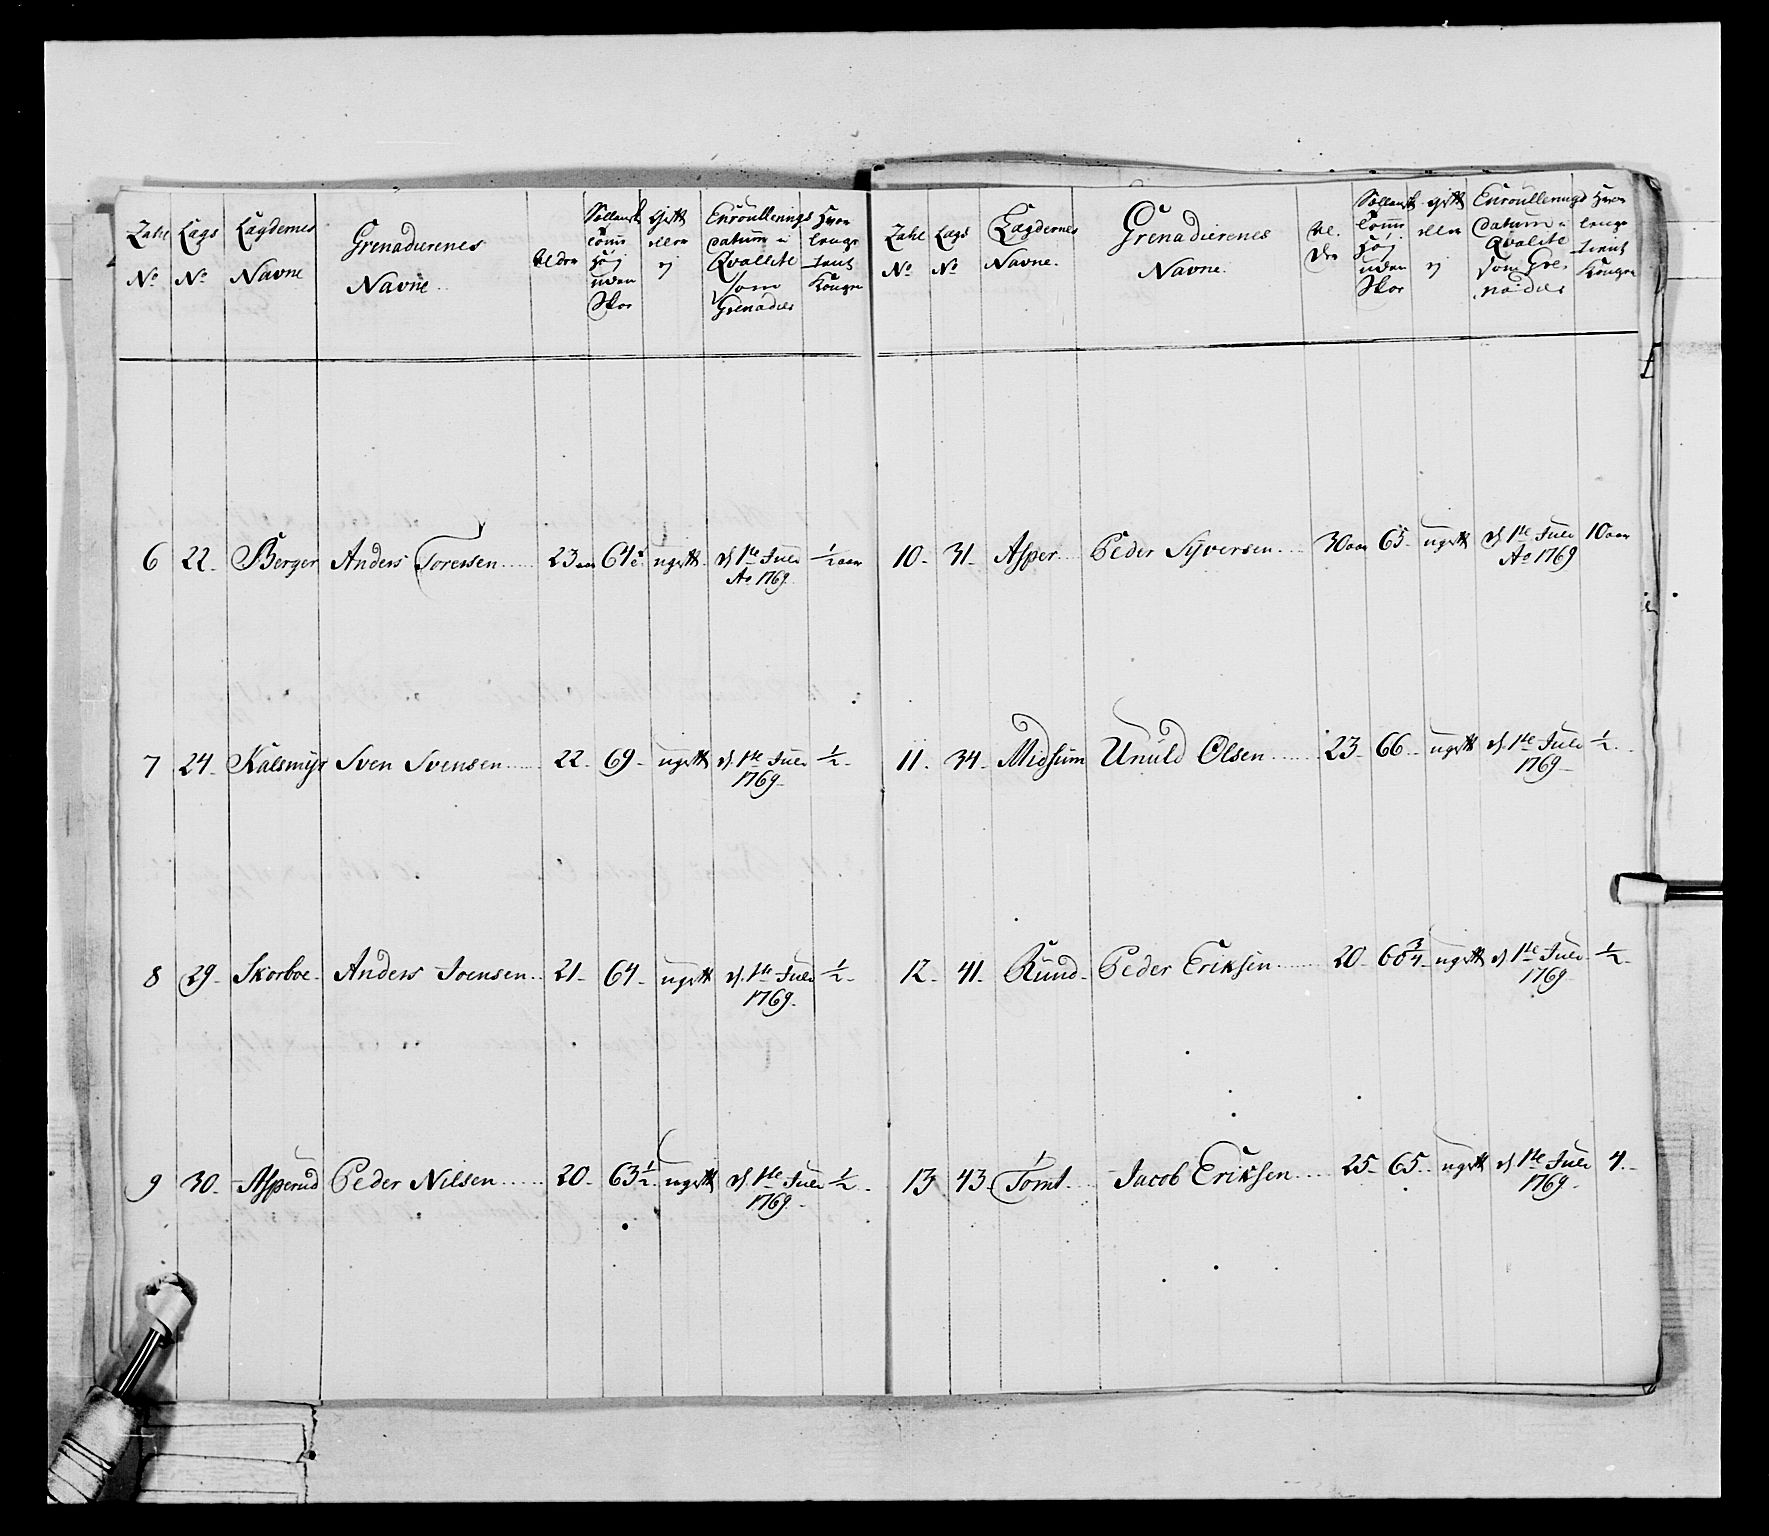 Zahl No
Lags No
Lægdernes Navne
Grenadierenes Navne
Alder
Sællandsk Tomm høÿ uden Skoe
Gift eller eÿ
Enroullerings datum i Qvalitè som Grenadier
Hvor lenge tient Kongen
6 22. Berger Anders Torersen 23 aar 64 ugift d 1te Julii ½ aar
Ao 1769
7 24. Kalsmÿr Sven Svensen 22. 69. ugift d. 1te Julii ½.
1769.
8 29. Skorboe. Anders Joensen 21. 64. ugift d. 1te Julii ½.
1769.
9 30. Asperud Peder Nilsen 20. 63½. ugift d. 1te Julii ½.
1769.
Zahl No
Lags No
Lægdernes Navne.
Grenadierenes Navne.
Alder
Sællandsk Tomm høÿ uden Skoe
gift eller eÿ
Enroullerings datum i Qvalitè som Grenadier
Hvor lenge tient Kongen
10. 31. Asper Peder Sÿversen 30 aar 65. ugift d 1te Julii 10 aar
Ao 1769
11. 34. Midsum Unuld Olsen 23. 66. ugift d. 1te Julii ½.
1769.
12. 41. Rund. Peder Eriksen 20. ugift d 1te Julii ½.
1769.
13 43. Tomt Jacob Eriksen 25. 65. ugift d 1te Julii 4.
1769.